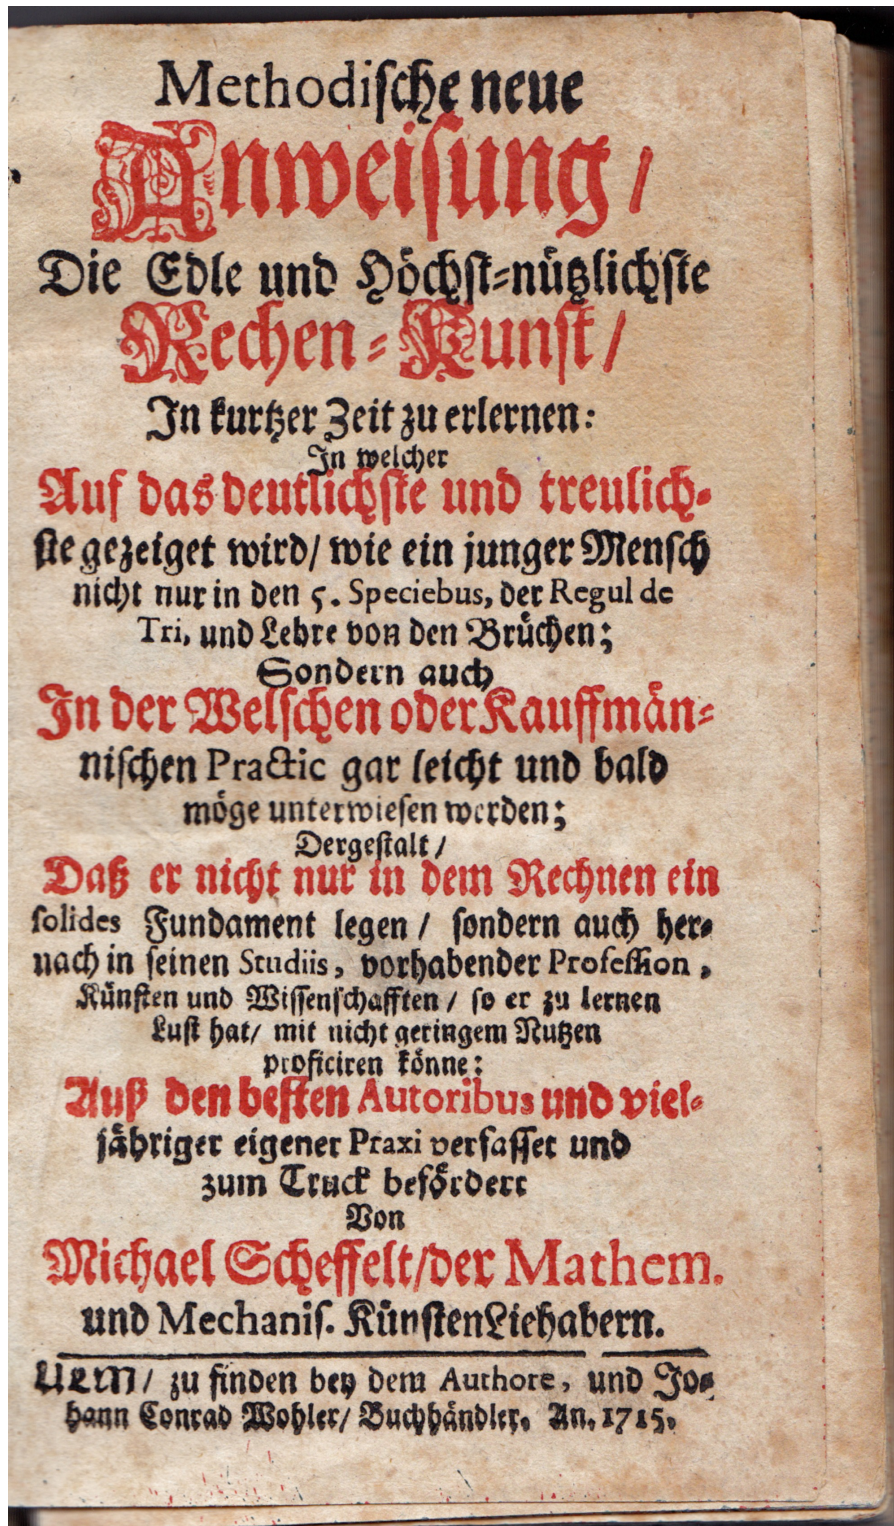 Methodische neue
Anweisung/
Die Edle und Höchst-nützlichste
Rechen-Kunst/
In kurtzer Zeit zu erlernen:
In welcher
Auf das deutlichste und treulich-
ste gezeiget wird/ wie ein junger Mensch
nicht nur in den 5. Speciebus, der Regul de
Tri, und Lehre von den Brüchen;
Sondern auch
In der Welschen oder Kauffmän-
nischen Practic gar leicht und bald
möge unterwiesen werden;
Dergestalt/
Daß er nicht nur in dem Rechnen ein
solides Fundament legen/ sondern auch her-
nach in seinen Studiis, vorhabender Profession,
Künsten und Wissenschafften/ so er zu lernen
Lust hat/ mit nicht geringem Nutzen
proficiren könne:
Auß den besten Autoribus und viel-
jähriger eigener Praxi verfasset und
zum Truck befördert
Von
Michael Scheffelt/der Mathem.
und Mechanis. Künsten Liehabern.
ULM/ zu finden bey dem Authore, und Jo-
hann Conrad Wohler/ Buchhändler. An. 1715.